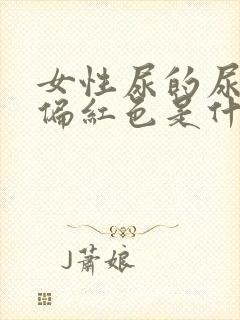 女性尿的尿
偏红色是什
J蕭娘